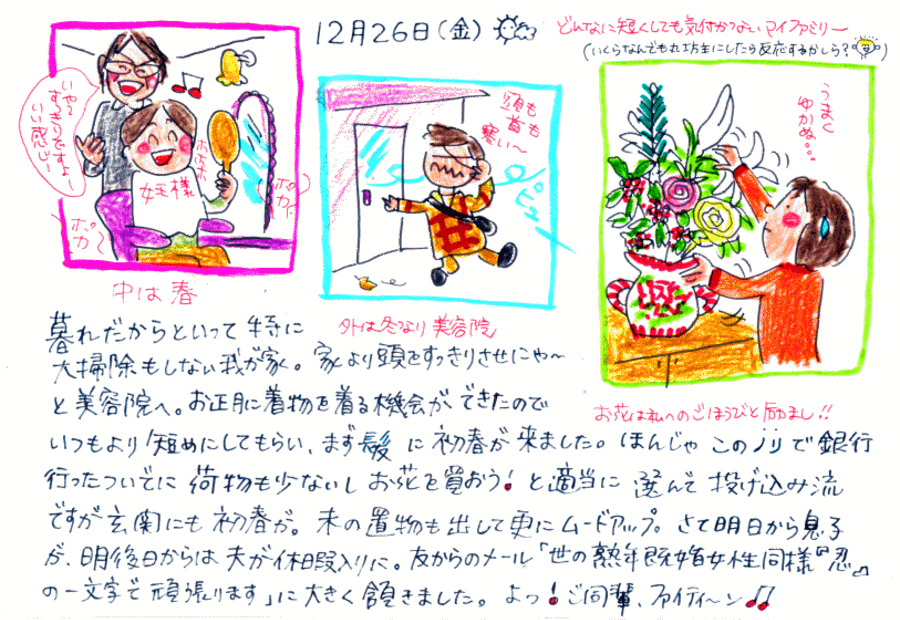 12月26日(金)
どんなに短くしても気付かないマイファミリー
(いくらなんでも丸坊主にしたら反応するかしら?)
いや〜
すっきりですよー
いい感じ!
ホホホ
女王様
ポカ
ポカ〜
中は春
頭も
首も
寒い〜
外は冬なり 美容院
うまく
ゆかぬ。。。
お花は私へのごほうびと励まし!!
暮れだからといって 特に
大掃除もしない我が家。家より頭をすっきりさせにゃ〜
と美容院へ。お正月に着物を着る機会ができたので
いつもより短めにしてもらい、まず髪に初春が来ました。ほんじゃ このノリで銀行
行ったついでに 荷物も少ないし お花を買おう!と適当に 選んで 投げ込み流
ですが玄関にも初春が。未の置物も出して更にムードアップ。さて明日から息子
が、明後日からは夫が休暇入りに。友からのメール「世の熟年既婚女性同様『忍』
の一文字で頑張ります」に大きく頷きました。よっ!ご同輩、ファイティ〜ン♪♪